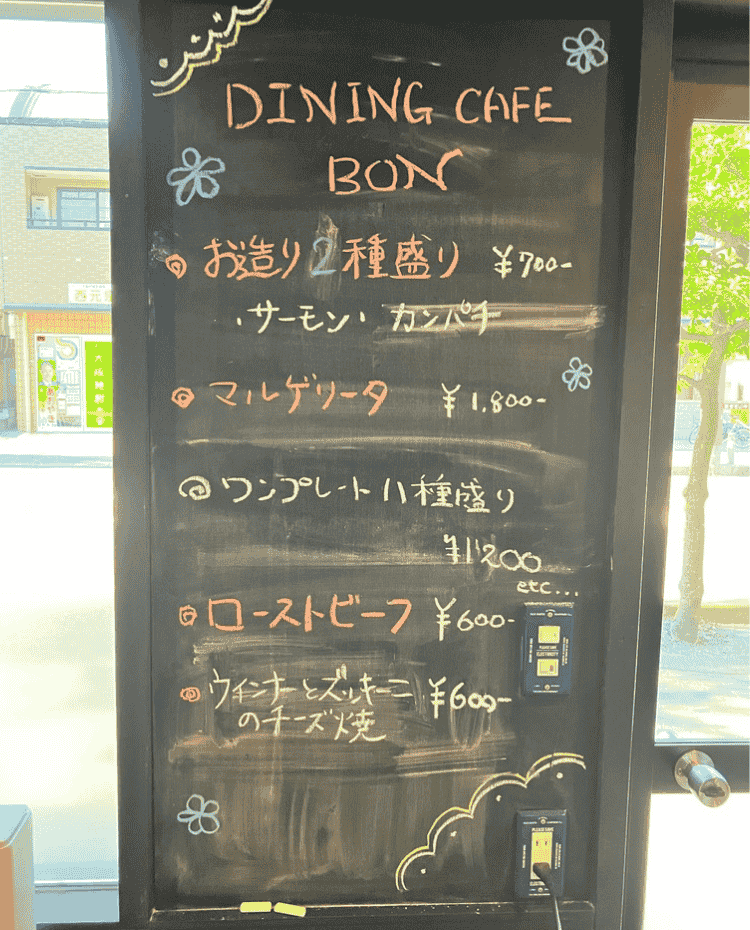 DINING CAFE
BON
お造り2種盛り ¥700-
・サーモン・カンパチ
マルゲリータ ¥1,800-
ワンプレート11種盛り
¥1200
etc...
ローストビーフ ¥600-
ウィンナーとズッキーニ ¥600-
のチーズ焼